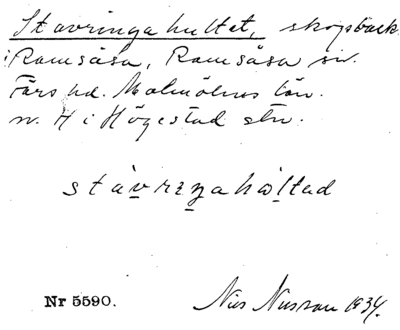 Stavringahultet, skogsback
i Ramsåsa, Ramsåsa sn.
Färs hd. Malmöhus län.
n. H i Högestad stn.
stavriŋahøltad
Nr 5590.
Nils 1934.